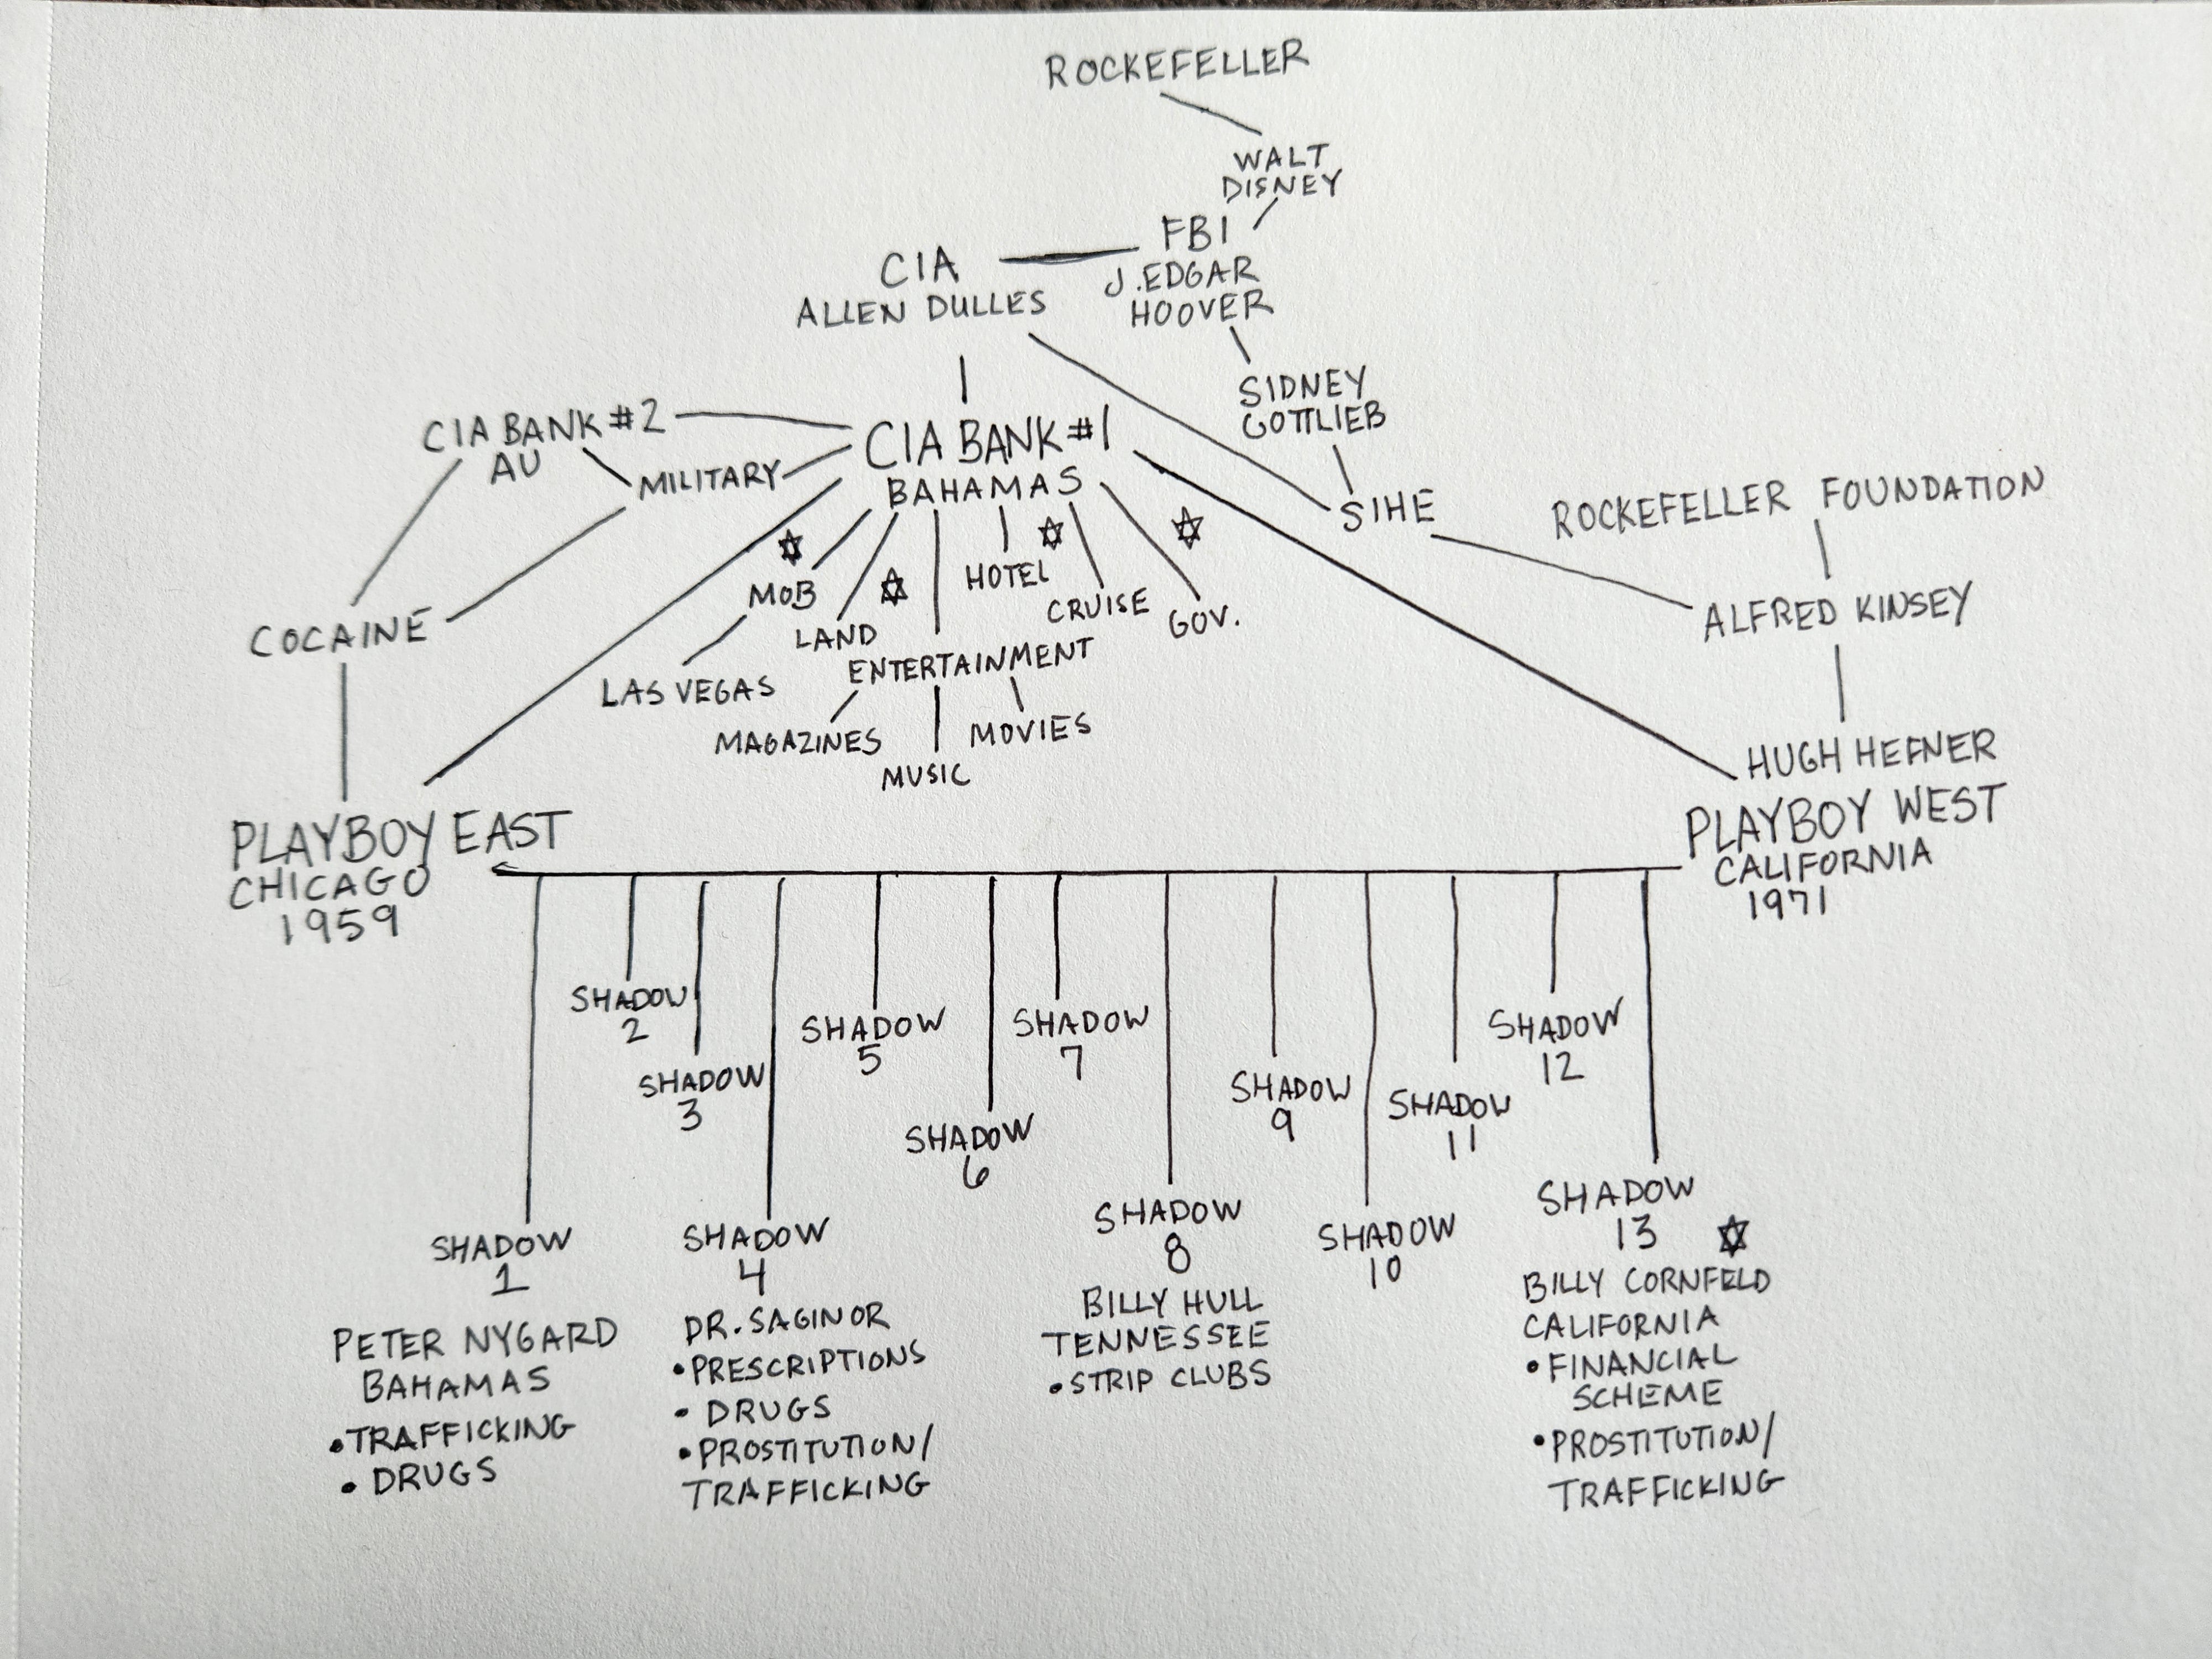 ROCKEFELLER
WALT
DISNEY
FBI
J. EDGAR
HOOVER
CIA
ALLEN DULLES
SIDNEY
GOTTLIEB
CIA BANK #2
AU
MILITARY
CIA BANK #1
BAHAMAS
SIHE
ROCKEFELLER FOUNDATION
ALFRED KINSEY
COCAINE
MOB
LAND
HOTEL
CRUISE
GOV.
LAS VEGAS
ENTERTAINMENT
MAGAZINES
MUSIC
MOVIES
HUGH HEFNER
PLAYBOY EAST
CHICAGO
1959
PLAYBOY WEST
CALIFORNIA
1971
SHADOW
2
SHADOW
3
SHADOW
5
SHADOW
6
SHADOW
7
SHADOW
9
SHADOW
11
SHADOW
12
SHADOW
10
SHADOW
1
PETER NYGARD
BAHAMAS
• TRAFFICKING
• DRUGS
SHADOW
4
DR. SAGINOR
• PRESCRIPTIONS
• DRUGS
• PROSTITUTION/
TRAFFICKING
SHADOW
8
BILLY HULL
TENNESSEE
• STRIP CLUBS
SHADOW
13
BILLY CORNFELD
CALIFORNIA
• FINANCIAL
SCHEME
• PROSTITUTION/
TRAFFICKING